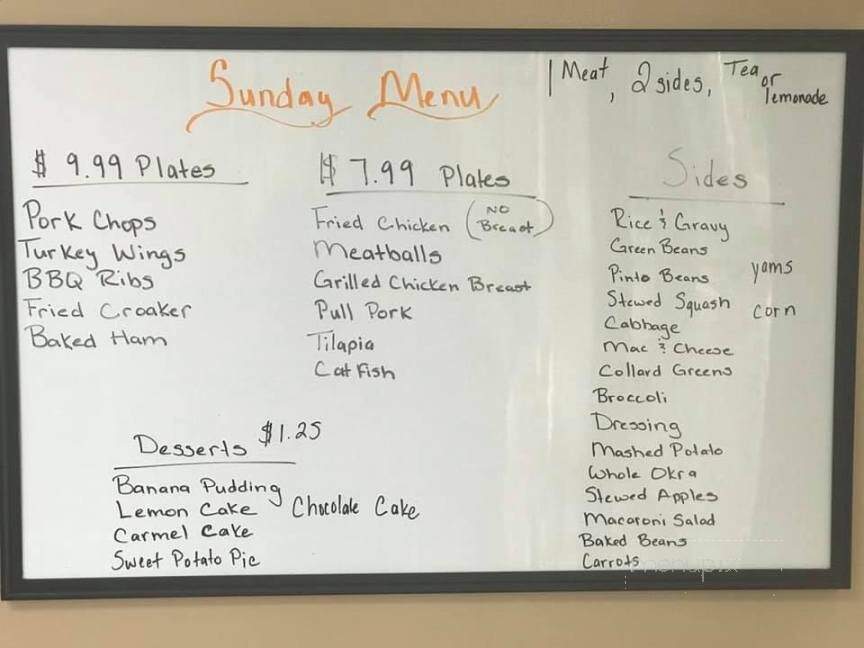 Sunday Menu
1 Meat, 2 sides, Tea or lemonade
$ 9.99 Plates
Pork Chops
Turkey Wings
BBQ Ribs
Fried Croaker
Baked Ham
$ 7.99 Plates
Fried Chicken (NO Breast)
Meatballs
Grilled Chicken Breast
Pull Pork
Tilapia
Catfish
Sides
Rice & Gravy
Green Beans
Pinto Beans
Stewed Squash
Cabbage
Mac & Cheese
Collard Greens
Broccoli
Dressing
Mashed Potato
Whole Okra
Stewed Apples
Macaroni Salad
Baked Beans
Carrots
yams
corn
Desserts $1.25
Banana Pudding
Lemon Cake
Carmel Cake
Sweet Potato Pie
Chocolate Cake
menupix